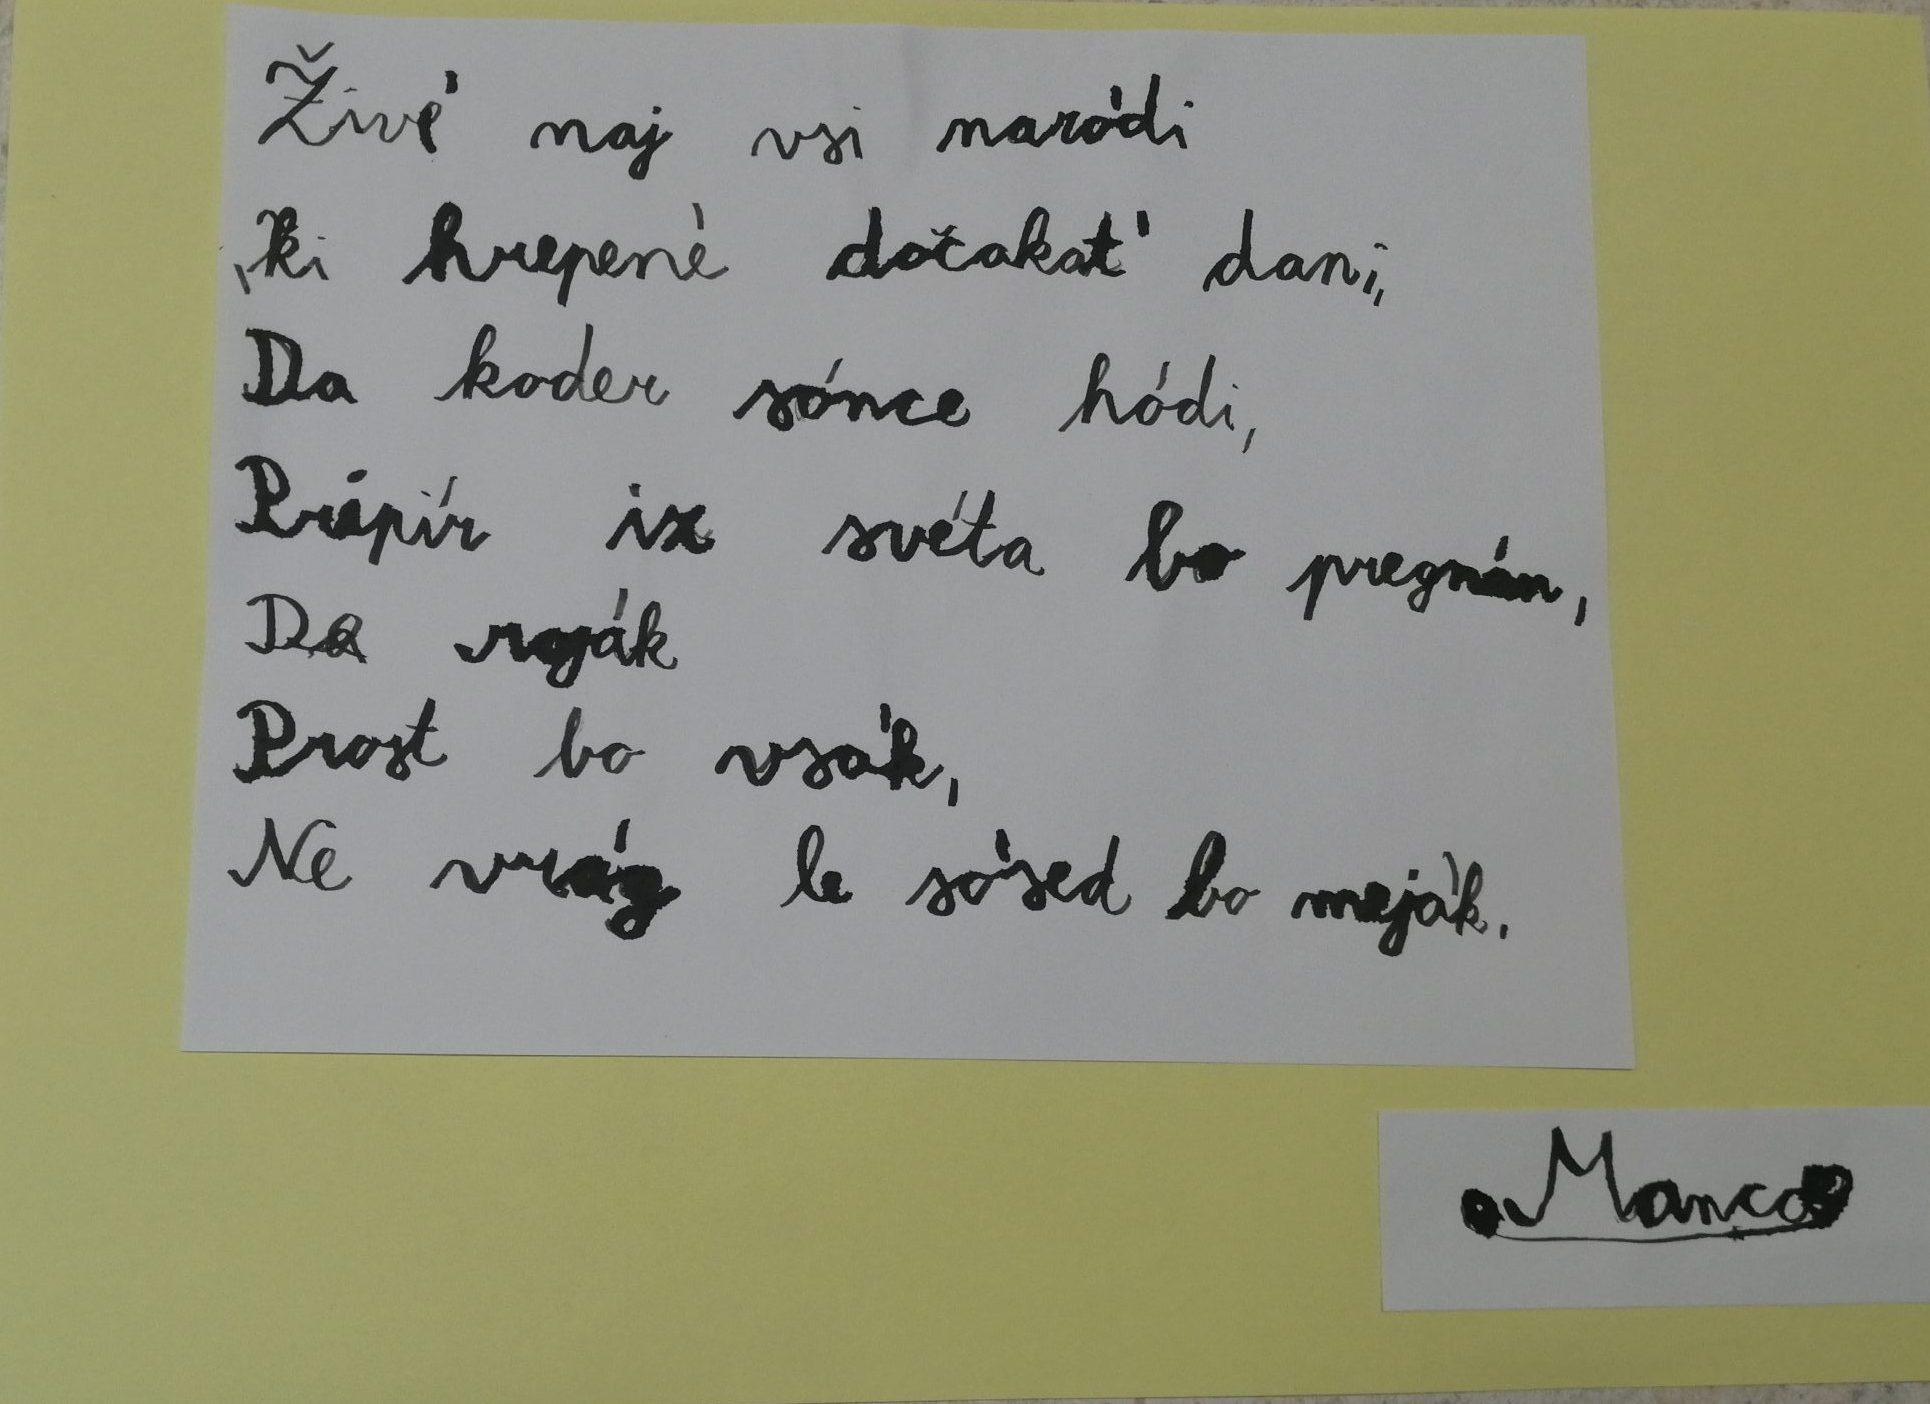 Živé naj vsi naródi
,ki hrepenè dočakat' dani,
Da koder sónce hódi,
Prépír iz svéta bo pregnán,
Da roják
Prost bo vsák,
Ne vrág le sósed bo meják.
Manca